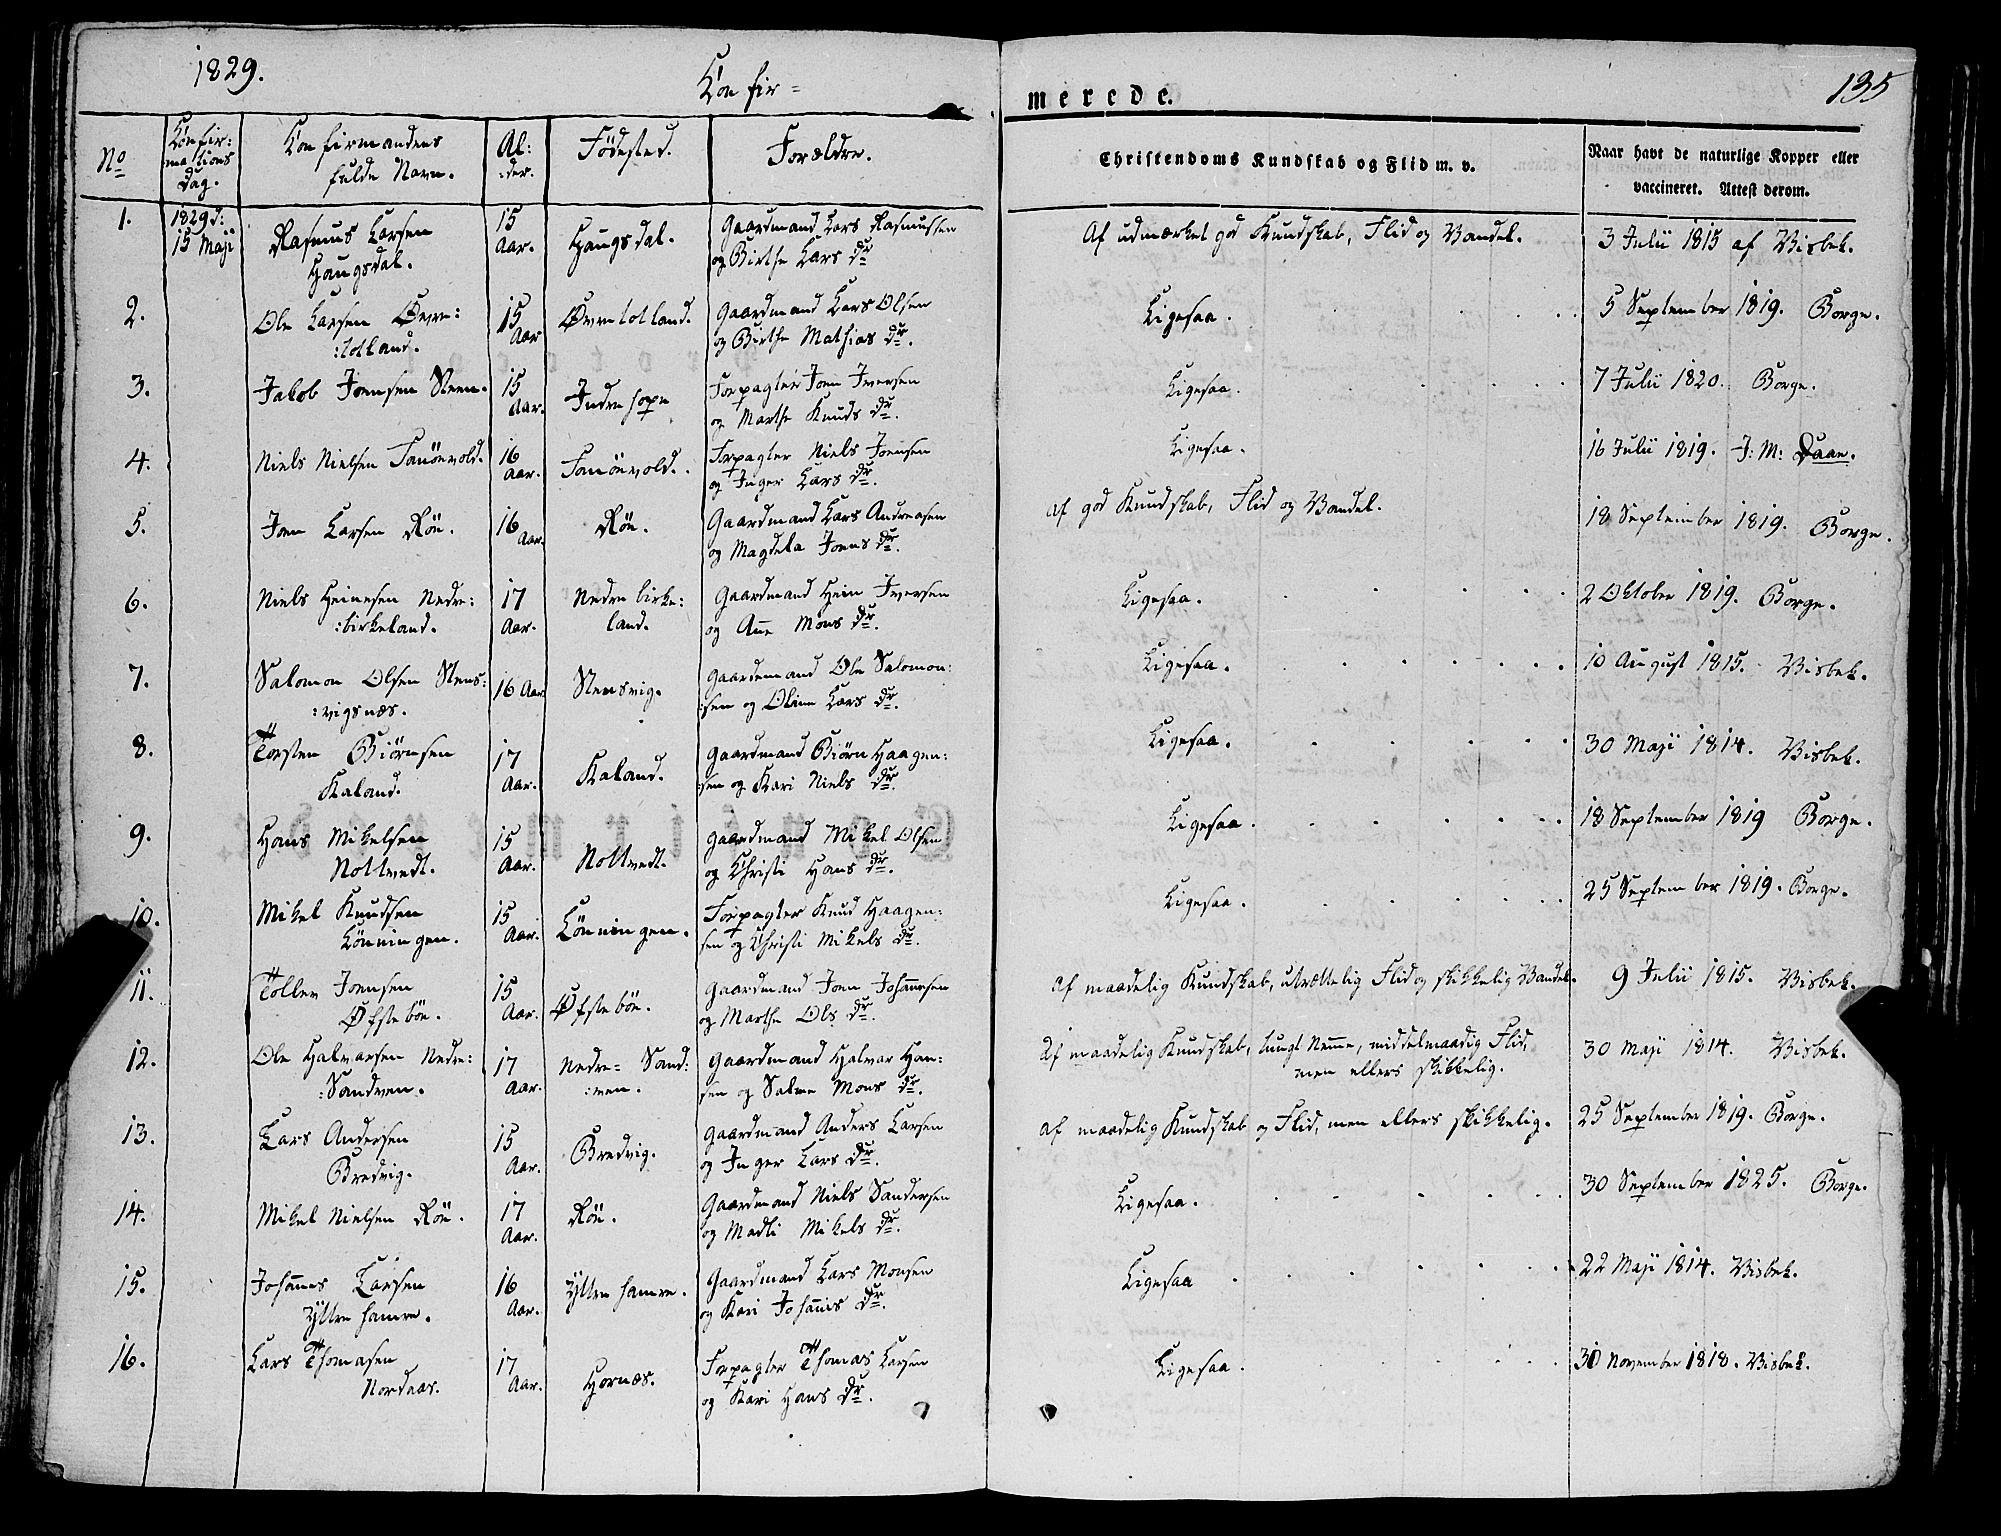 1829.
Confir=
merede.
135
No
Confir:
mations
Dag.
Confirmandens
fulde Navn.
Al:
:der.
Födested.
Forældre.
Christendoms Kundskab og Flid m. v.
Naar havt de naturlige Kopper eller
vaccineret. Attest derom.
1.
1829 d:
15 Maji
Rasmus Larsen
Haugsdal.
15
Aar.
Haugsdal.
Gaardmand Lars Rasmussen
og Birthe Lars Dr
Af udmærket god Kundskab, Flid og Vandel.
3 Julii 1815 af Visbek.
2.
Ole Larsen Övre:
:totland.
15
Aar
Övretotland.
Gaardmand Lars Olsen
og Birthe Mathias Dr.
Ligesaa.
5 September 1819. Borge.
3.
Jakob Joensen Steen.
15
Aar.
Indre hope
Forpagter Joen Iversen
og Marthe Knuds Dr.
Ligesaa.
7 Julii 1820. Borge.
4.
Niels Nielsen Fanöevold.
16
Aar.
Fanöevold.
Forpagter Niels Joensen
og Inger Lars Dr.
Ligesaa.
16 Julii 1819. J: M: Daae.
5.
Joen Larsen Röe.
16
Aar.
Röe.
Gaardmand Lars Andreasen
og Magdela Joens Dr.
af god Kundskab, Flid og Vandel.
18 September 1819. Borge.
6.
Niels Heinesen Nedre:
:birkeland.
17
Aar.
Nedre birke:
land.
Gaardmand Hein Iversen
og Ane Mons Dr.
Ligesaa.
2 Oktober 1819. Borge.
7.
Salomon Olsen Stens:
:vigsnæs.
16 Aar
Stensvig.
Gaardmand Ole Salomon:
:sen og Oline Lars Dr.
Ligesaa.
10 August 1815. Visbek.
8.
Torsten Biörnsen
Kaland.
17
Aar.
Kaland.
Gaardmand Biörn Haagen:
:sen og Kari Niels Dr.
Ligesaa.
30 Maji 1814. Visbek.
9.
Hans Mikelsen
Nottvedt.
15
Aar.
Nottvedt.
Gaardmand Mikel Olsen
og Christi Hans Dr.
Ligesaa
18 September 1819 Borge.
10.
Mikel Knudsen
Lönningen.
15
Aar.
Lönningen.
Forpagter Knud Haagen:
sen og Christi Mikels Dr.
Ligesaa.
25 September 1819. Borge.
11.
Tollev Joensen
Öfsteböe.
15
Aar.
Öfsteböe.
Gaardmand Joen Johannesen
og Marthe Ols Dr.
Af maadelig Kundskab, utrættelig Flid og skikkelig Vandel.
9 Julii 1815. Visbek.
12.
Ole Halvarsen Nedre:
:Sandven.
17
Aar.
Nedre= Sand:
:ven.
Gaardmand Halvar Han:
sen og Salme Mons Dr.
Af maadelig Kundskab, tungt Nemme, middelmaadig Flid,
men ellers skikkelig.
30 Maji 1814. Visbek.
13.
Lars Andersen
Bredvig.
15
Aar.
Bredvig.
Gaardmand Anders Larsen
og Inger Lars Dr.
af maadelig Kundskab og Flid, men ellers skikkelig.
25 September 1819. Borge.
14.
Mikel Nielsen Röe.
17
Aar.
Röe.
Gaardmand Niels Sandersen
og Madli Mikels Dr.
Ligesaa.
30 September 1825. Borge.
15.
Johannes Larsen
Yttre hamre.
16
Aar.
Yttre hamre.
Gaardmand Lars Monsen
og Kari Johannis Dr.
Ligesaa
22 Maji 1814. Visbek.
16.
Lars Thomasen
Nordaas.
17
Aar.
Hornæs.
Forpagter Thomas Larsen
og Kari Hans Dr.
Ligesaa.
30 November 1818. Visbek.